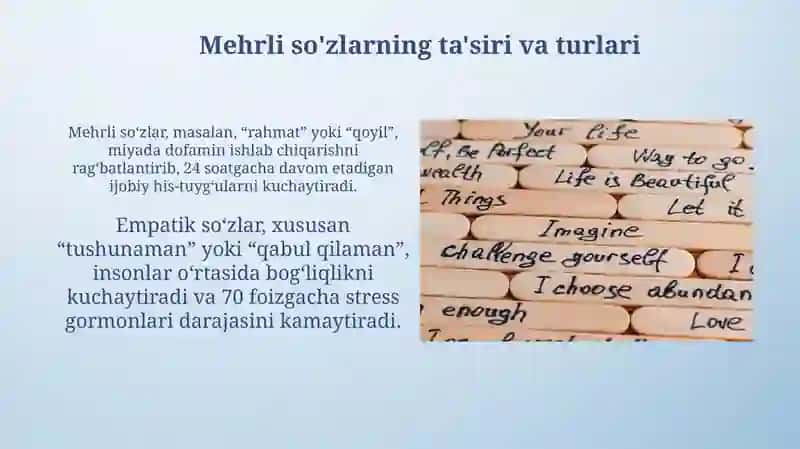 Mehrli so'zlarning ta'siri va turlari
Mehrli so‘zlar, masalan, “rahmat” yoki “qoyil”,
miyada dofamin ishlab chiqarishni
rag‘batlantirib, 24 soatgacha davom etadigan
ijobiy his-tuyg‘ularni kuchaytiradi.
Empatik so‘zlar, xususan
“tushunaman” yoki “qabul qilaman”,
insonlar o‘rtasida bog‘liqlikni
kuchaytiradi va 70 foizgacha stress
gormonlari darajasini kamaytiradi.
Your life
lf, Be Perfect
Way to go.
wealth
Life is Beautiful
Things
Let it
Imagine
challenge yourself
I
I choose abundan
enough
Love